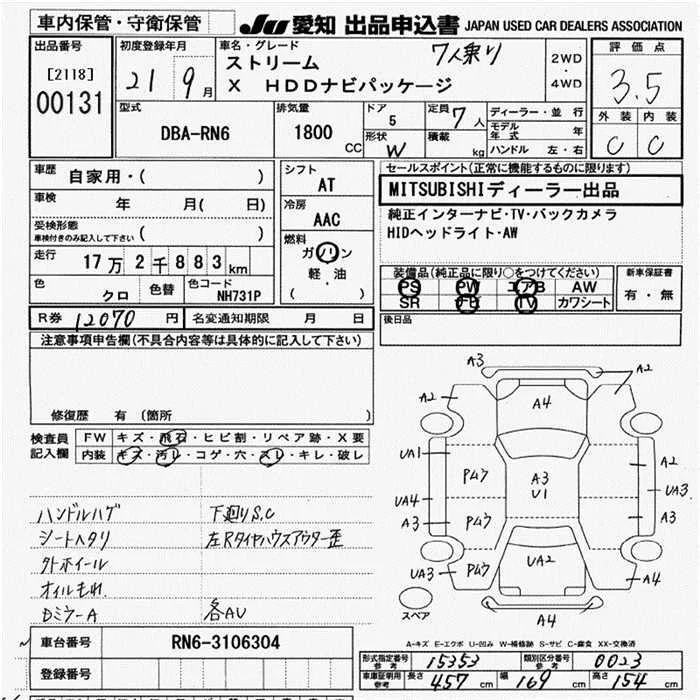 車内保管・守衛保管
JU 愛知 出品申込書 JAPAN USED CAR DEALERS ASSOCIATION
出品番号
[2118]
00131
初度登録年月
21 9月
車名・グレード
7人乗り
ストリーム
X HDDナビパッケージ
2WD
・
4WD
評価点
3.5
外装 内装
C C
型式
DBA-RN6
排気量
1800 CC
ドア
5
定員 7人
形状 W
積載 kg
ディーラー・並行
モデル年式 年
ハンドル 左・右
車歴
自家用・( )
車検
年 月( 日)
受検形態
車検付きのみ記入して下さい ( )
走行 17万2千883km
色 クロ
色替
色コード NH731P
シフト
AT
冷房
AAC
燃料
ガソリン
軽・油
( )
セールスポイント(正常に機能するものに限ります)
MITSUBISHIディーラー出品
純正インターナビ・TV・バックカメラ
HIDヘッドライト・AW
装備品(純正品に限り○をつけてください)
PS PW エアB AW
SR TV カワシート
新車保証書
有・無
R券 12070 円
名変通知期限 月 日
後日品
注意事項申告欄(不具合内容等は具体的に記入して下さい)
修復歴 有 (箇所 )
検査員
記入欄
FW キズ・飛石・ヒビ割・リペア跡・X要
内装 キズ・汚レ・コゲ・穴・スレ・キレ・破レ
ハンドルハゲ
下廻りS.C
シートヘタリ
左Rタイヤハウスアウター歪
外ホイール
オイルもれ
DミラーA
各AU
A3
A2
A2
A4
UA1
Pムラ
A3
U1
A2
UA3
UA4
A3
Pムラ
A3
UA3
Pムラ
UA2
A4
A4
スペア
A-キズ E-エクボ U-凹み W-補修跡 S-サビ C-腐食 XX-交換済
車台番号 RN6-3106304
登録番号
形式指定番号 参考 15353
類別区分番号 参考 0023
車庫証明用 参考 長さ 457cm 幅 169cm 高さ 154cm